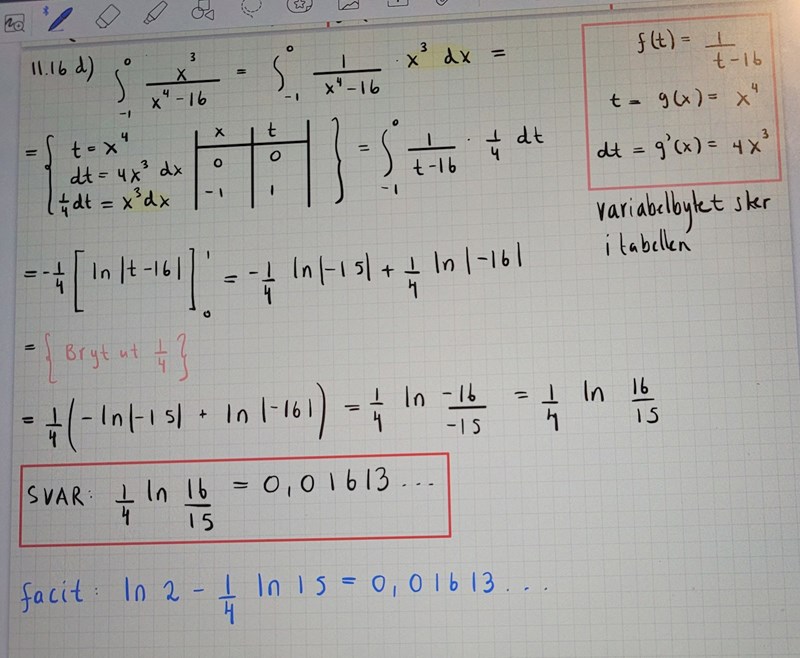 11.16 d) ∫₋₁⁰ x³/(x⁴-16) = ∫₋₁⁰ 1/(x⁴-16) · x³ dx =
f(t) = 1/(t-16)
t = g(x) = x⁴
dt = g'(x) = 4x³
variabelbytet sker
i tabellen
= { t = x⁴
dt = 4x³ dx
1/4 dt = x³dx
x | t
0 | 0
-1 | 1
} = ∫₋₁⁰ 1/(t-16) · 1/4 dt
= -1/4 [ ln|t-16| ]₀¹ = -1/4 ln|-15| + 1/4 ln|-16|
= { Bryt ut 1/4 }
= 1/4 (-ln|-15| + ln|-16|) = 1/4 ln -16/-15 = 1/4 ln 16/15
SVAR: 1/4 ln 16/15 = 0,01613...
facit: ln 2 - 1/4 ln 15 = 0,01613...